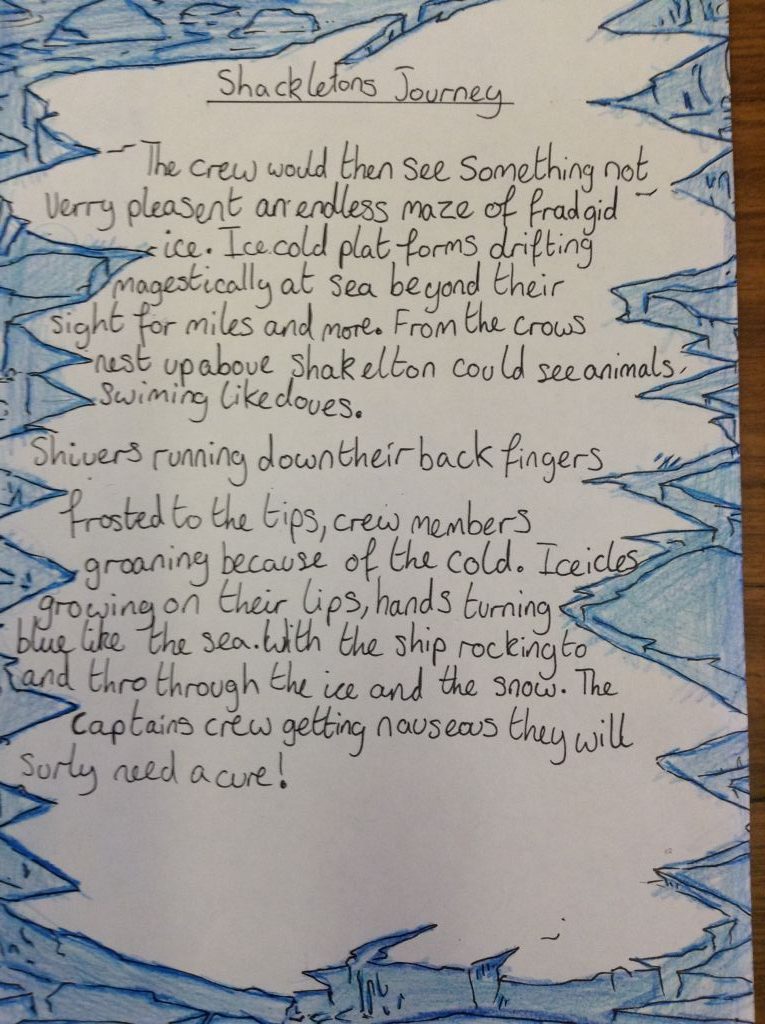 Shackletons Journey
The crew would then see something not
verry pleasent an endless maze of fradgid
ice. Ice cold plat forms drifting
magestically at sea beyond their
sight for miles and more. From the crows
nest up above Shakelton could see animals
swiming like doves.
Shivers running down their back fingers
frosted to the tips, crew members
groaning because of the cold. Iceicles
growing on their lips, hands turning
blue like the sea. With the ship rocking to
and thro through the ice and the snow. The
captains crew getting nauseous they will
surly need a cure!